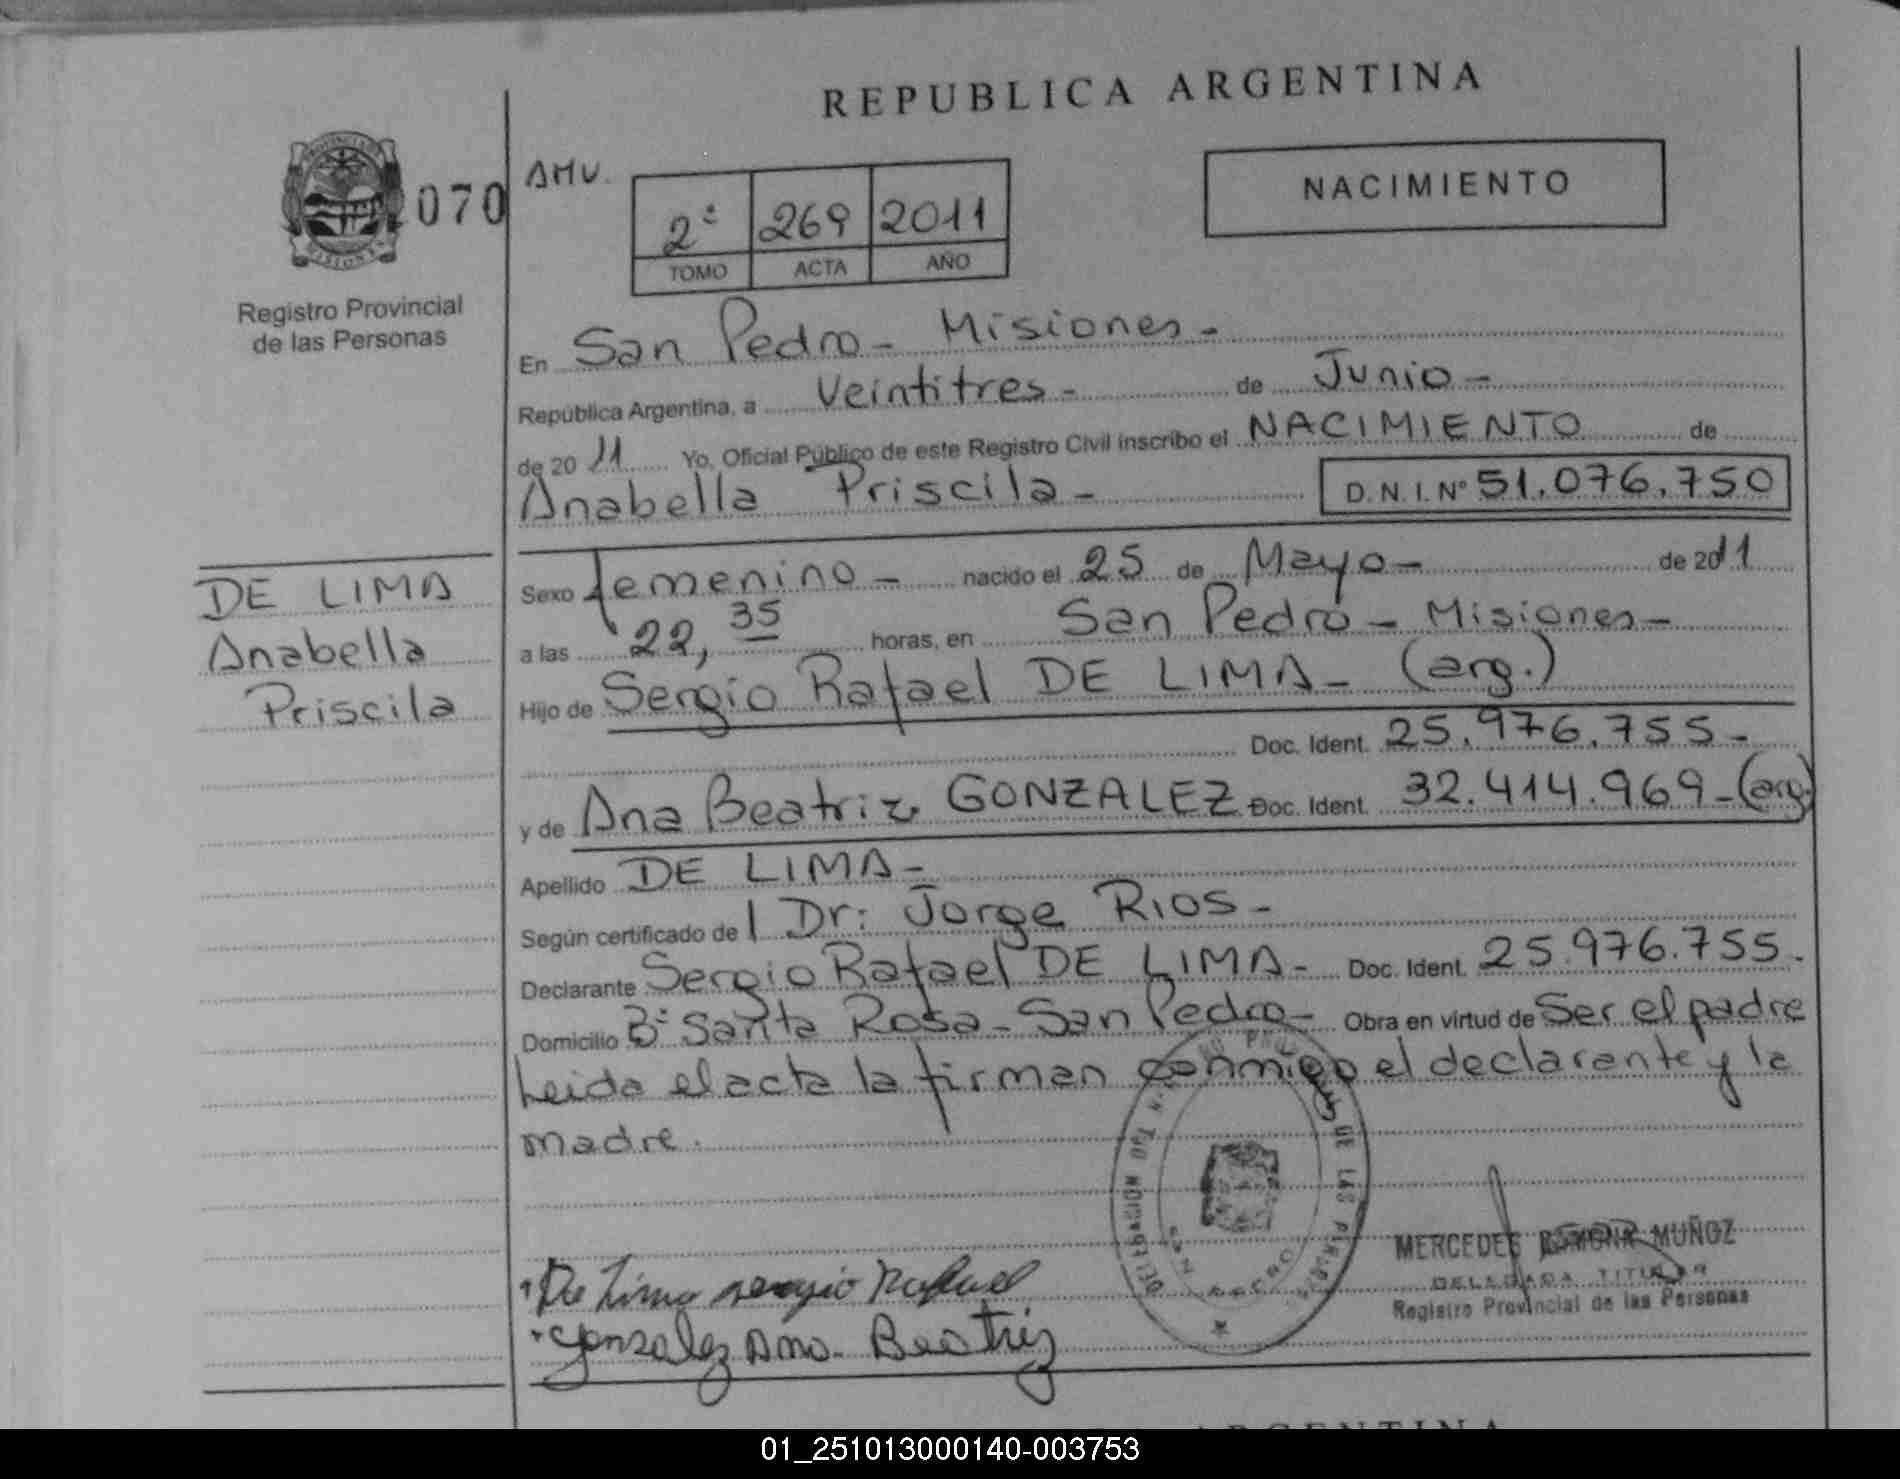 REPUBLICA ARGENTINA
070
AMU.
NACIMIENTO
2º 269 2011
TOMO ACTA AÑO
Registro Provincial
de las Personas
En San Pedro - Misiones -
República Argentina, a Veintitres - de Junio -
de 20 11 Yo, Oficial Público de este Registro Civil inscribo el NACIMIENTO de
Anabella Priscila - D.N.I. Nº 51.076.750
DE LIMA
Anabella
Priscila
Sexo femenino - nacido el 25 de Mayo - de 2011
a las 22, 35 horas, en San Pedro - Misiones -
Hijo de Sergio Rafael DE LIMA - (arg.)
Doc. Ident. 25.976.755 -
y de Ana Beatriz GONZALEZ - Doc. Ident. 32.414.969 - (arg.)
Apellido DE LIMA -
Según certificado de l Dr: Jorge RIOS -
Declarante Sergio Rafael DE LIMA - Doc. Ident. 25.976.755 -
Domicilio Bº Santa Rosa - San Pedro - Obra en virtud de Ser el padre
Leida el acta la firman conmigo el declarante y la
madre.
DE LAS
SAN PEDRO
MERCEDES RAMONA MUÑOZ
DELEGADA TITULAR
Registro Provincial de las Personas
De Lima sergio Rafael
Gonzalez Ana Beatriz
ARGENTINA
01_251013000140-003753